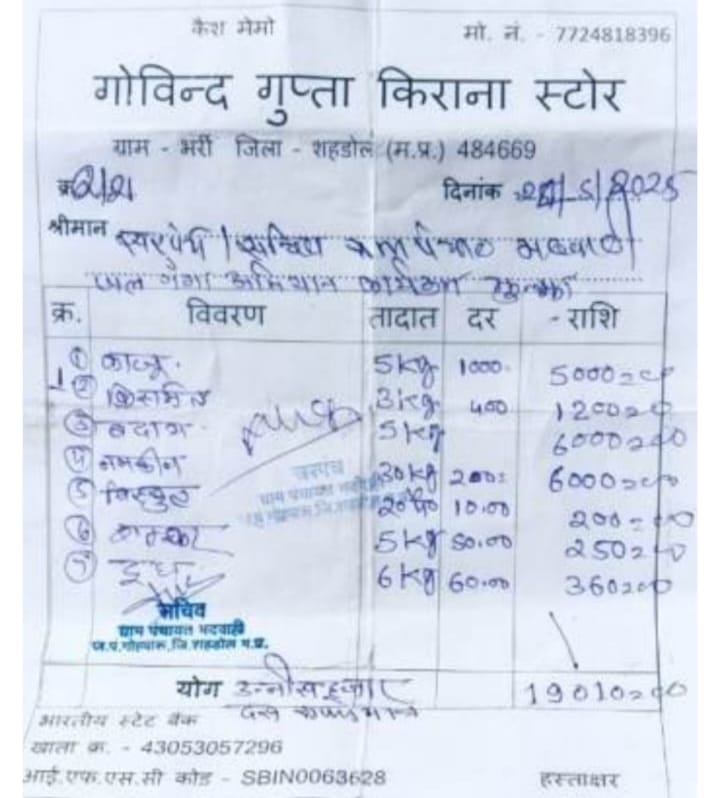 कैश मेमो मो. नं. - 7724818396
गोविन्द गुप्ता किराना स्टोर
ग्राम - भर्री जिला - शहडोल (म.प्र.) 484669
क्र. दिनांक 5/2025
श्रीमान
जल गंगा अभियान कार्यक्रम
क्र. विवरण तादात दर राशि
① काजू 5 kg 1000 5000=00
② किसमिस 3 kg 400 1200=00
③ बदाम 5 kg 6000=00
④ नमकीन 30 kg 200= 6000=00
⑤ बिस्कुट 20 10.00 200=00
⑥ 5 kg 50.00 250=00
⑦ दूध 6 kg 60.00 360=00
सरपंच
ग्राम पंचायत
सचिव
ग्राम पंचायत भदवाही
ज.पं.गोहपारू,जि.शहडोल म.प्र.
योग उन्नीस हजार 19010=00
दस रुपये मात्र
भारतीय स्टेट बैंक
खाता क. - 43053057296
आई.एफ.एस.सी कोड - SBIN0063628 हस्ताक्षर